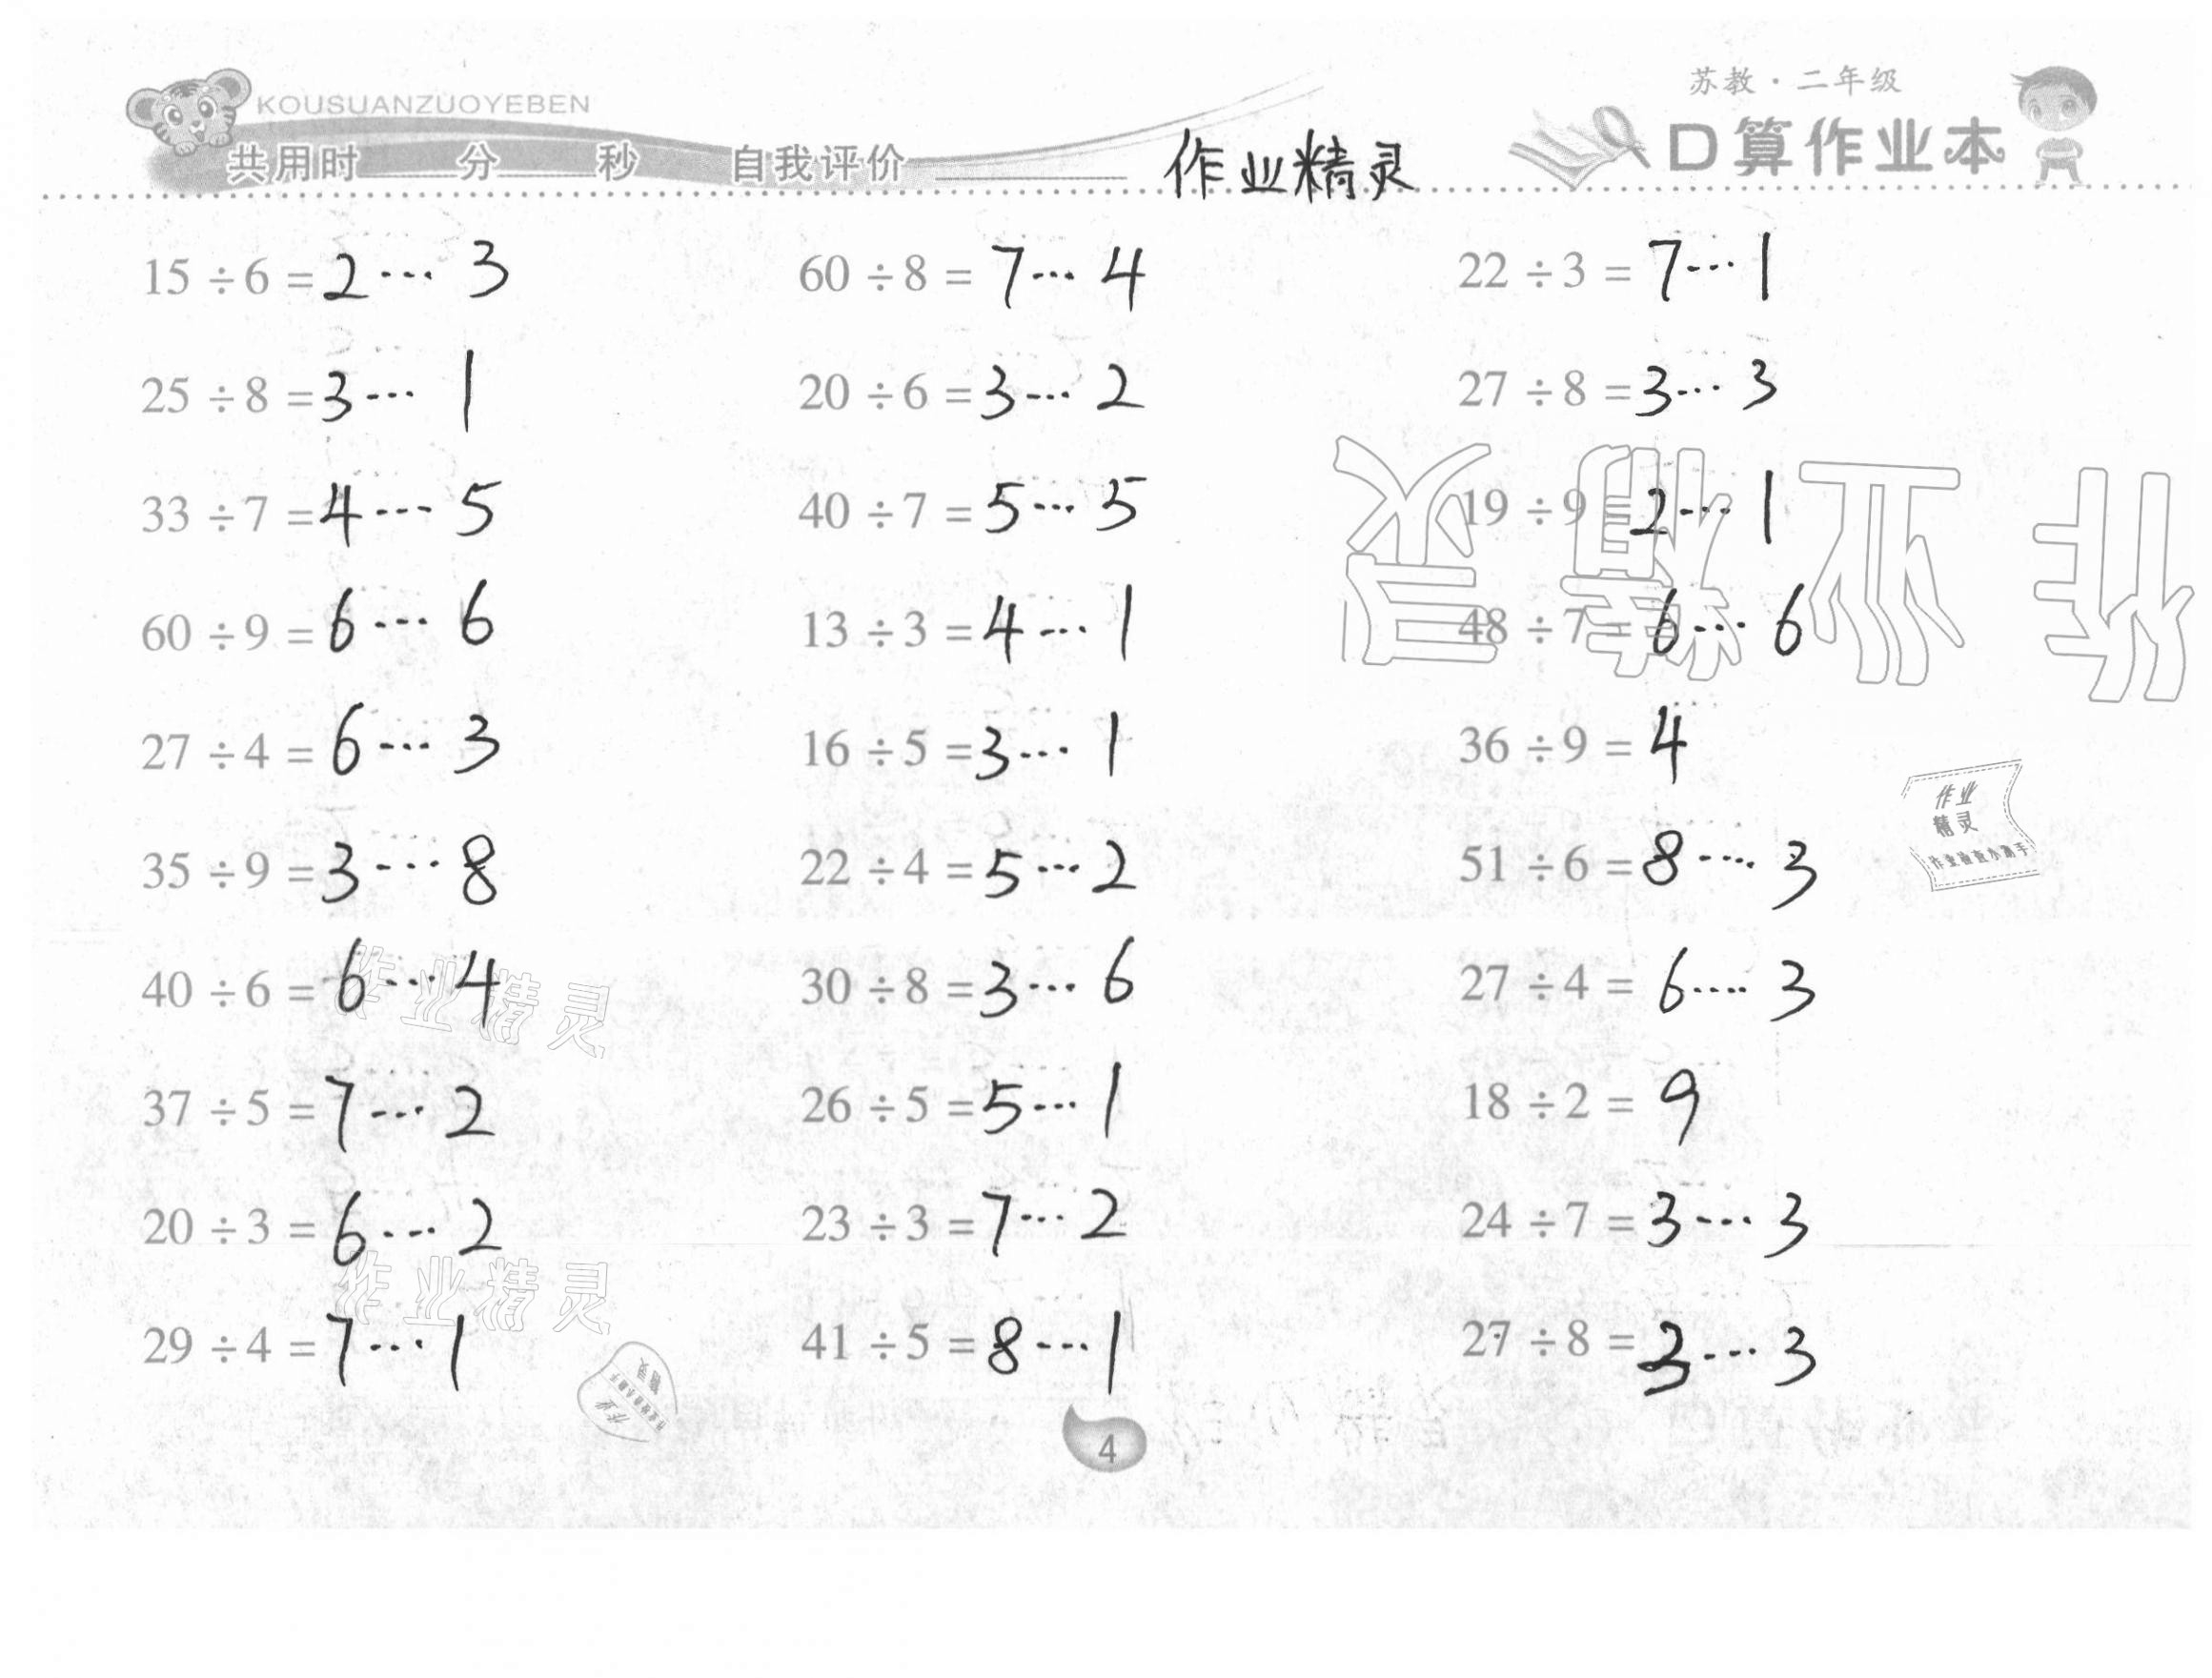 KOUSUANZUOYEBEN
苏教·二年级
共用时 分 秒 自我评价 作业精灵 口算作业本
15÷6=2…3 60÷8=7…4 22÷3=7…1
25÷8=3…1 20÷6=3…2 27÷8=3…3
33÷7=4…5 40÷7=5…5 19÷9=2…1
60÷9=6…6 13÷3=4…1 48÷7=6…6
27÷4=6…3 16÷5=3…1 36÷9=4
35÷9=3…8 22÷4=5…2 51÷6=8…3
40÷6=6…4 30÷8=3…6 27÷4=6…3
37÷5=7…2 26÷5=5…1 18÷2=9
20÷3=6…2 23÷3=7…2 24÷7=3…3
29÷4=7…1 41÷5=8…1 27÷8=3…3
4
作业精灵
作业精灵
作业精灵
作业
精灵
作业检查小助手
作业
精灵
作业检查小助手